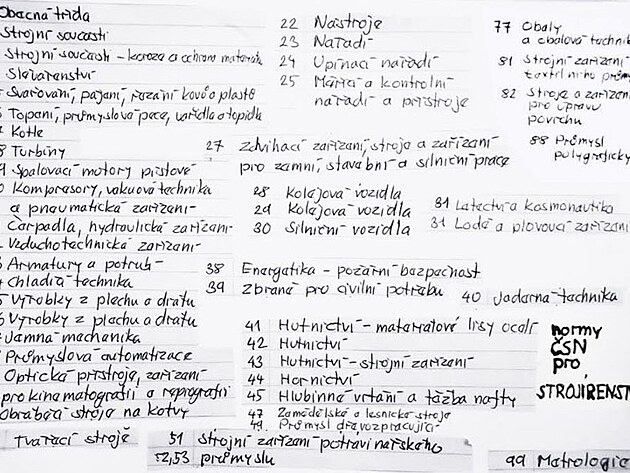 Obecná třída
Strojní součásti
Strojní součásti - koroze a ochran materiálu
Slévárenství
Svařování, pájení, řezání kovů a plastů
Topení, průmyslové pece, vařidla a topidla
7 Kotle
8 Turbíny
9 Spalovací motory pístové
0 Kompresory, vakuová technika
a pneumatická zařízení
Čerpadla, hydraulická zařízení
Vzduchotechnická zařízení
Armatury a potrubí
Chladící technika
5 Výrobky z plechu a drátu
6 Výrobky z plechu a drátu
7 Jemná mechanika
Průmyslová automatizace
Optické přístroje, zařízení
pro kinematografii a reprografii
Obráběcí stroje na kovy
Tvářecí stroje
22 Nástroje
23 Nářadí
24 Upínací nářadí
25 Měřící a kontrolní
nářadí a přístroje
27 Zdvihací zařízení, stroje a zařízení
pro zemní, stavební a silniční práce
28 Kolejová vozidla
29 Kolejová vozidla
30 Silniční vozidla
31 Letectví a kosmonautika
31 Lodě a plovoucí zařízení
38 Energetika - požární bezpečnost
39 Zbraně pro civilní potřebu
40 Jaderná technika
41 Hutnictví - materiálové listy oceli
42 Hutnictví
43 Hutnictví - strojní zařízení
44 Hornictví
45 Hlubinné vrtání a těžba nafty
47 Zemědělské a lesnické stroje
49 Průmysl dřevozpracující
51 Strojní zařízení potravinářského
52,53 průmyslu
77 Obaly
a obalová technik
81 Strojní zařízení
textilního prům
82 Stroje a zařízení
pro úpravu
povrchu
88 Průmysl
polygrafický
normy
ČSN
pro
STROJÍRENST
99 Metrologie